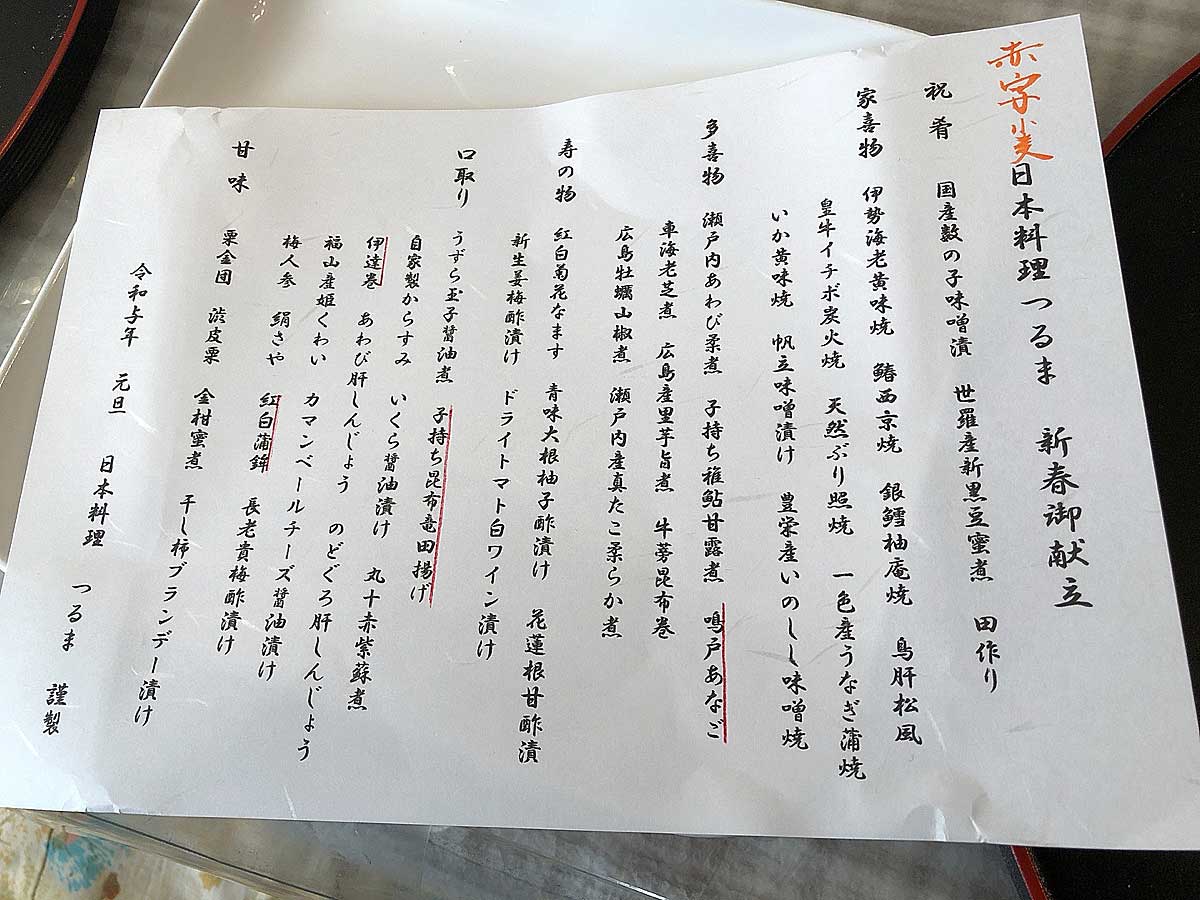 赤字小麦
日本料理つるま 新春御献立
祝肴 国産数の子味噌漬 世羅産新黒豆蜜煮 田作り
家喜物 伊勢海老黄味焼 鰆西京焼 銀鱈柚庵焼 鳥肝松風
皇牛イチボ炭火焼 天然ぶり照焼 一色産うなぎ蒲焼
いか黄味焼 帆立味噌漬け 豊栄産いのしし味噌焼
多喜物 瀬戸内あわび柔煮 子持ち稚鮎甘露煮 鳴戸あなご
車海老芝煮 広島産里芋旨煮 牛蒡昆布巻
広島牡蠣山椒煮 瀬戸内産真たこ柔らか煮
寿の物 紅白菊花なます 青味大根柚子酢漬け 花蓮根甘酢漬
新生姜梅酢漬け ドライトマト白ワイン漬け
口取り うずら玉子醤油煮 子持ち昆布竜田揚げ
自家製からすみ いくら醤油漬け 丸十赤紫蘇煮
伊達巻 あわび肝しんじょう のどぐろ肝しんじょう
福山産姫くわい カマンベールチーズ醤油漬け
梅人参 絹さや 紅白蒲鉾 長老貴梅酢漬け
甘味 栗金団 渋皮栗 金柑蜜煮 干し柿ブランデー漬け
令和与年 元旦 日本料理 つるま 謹製